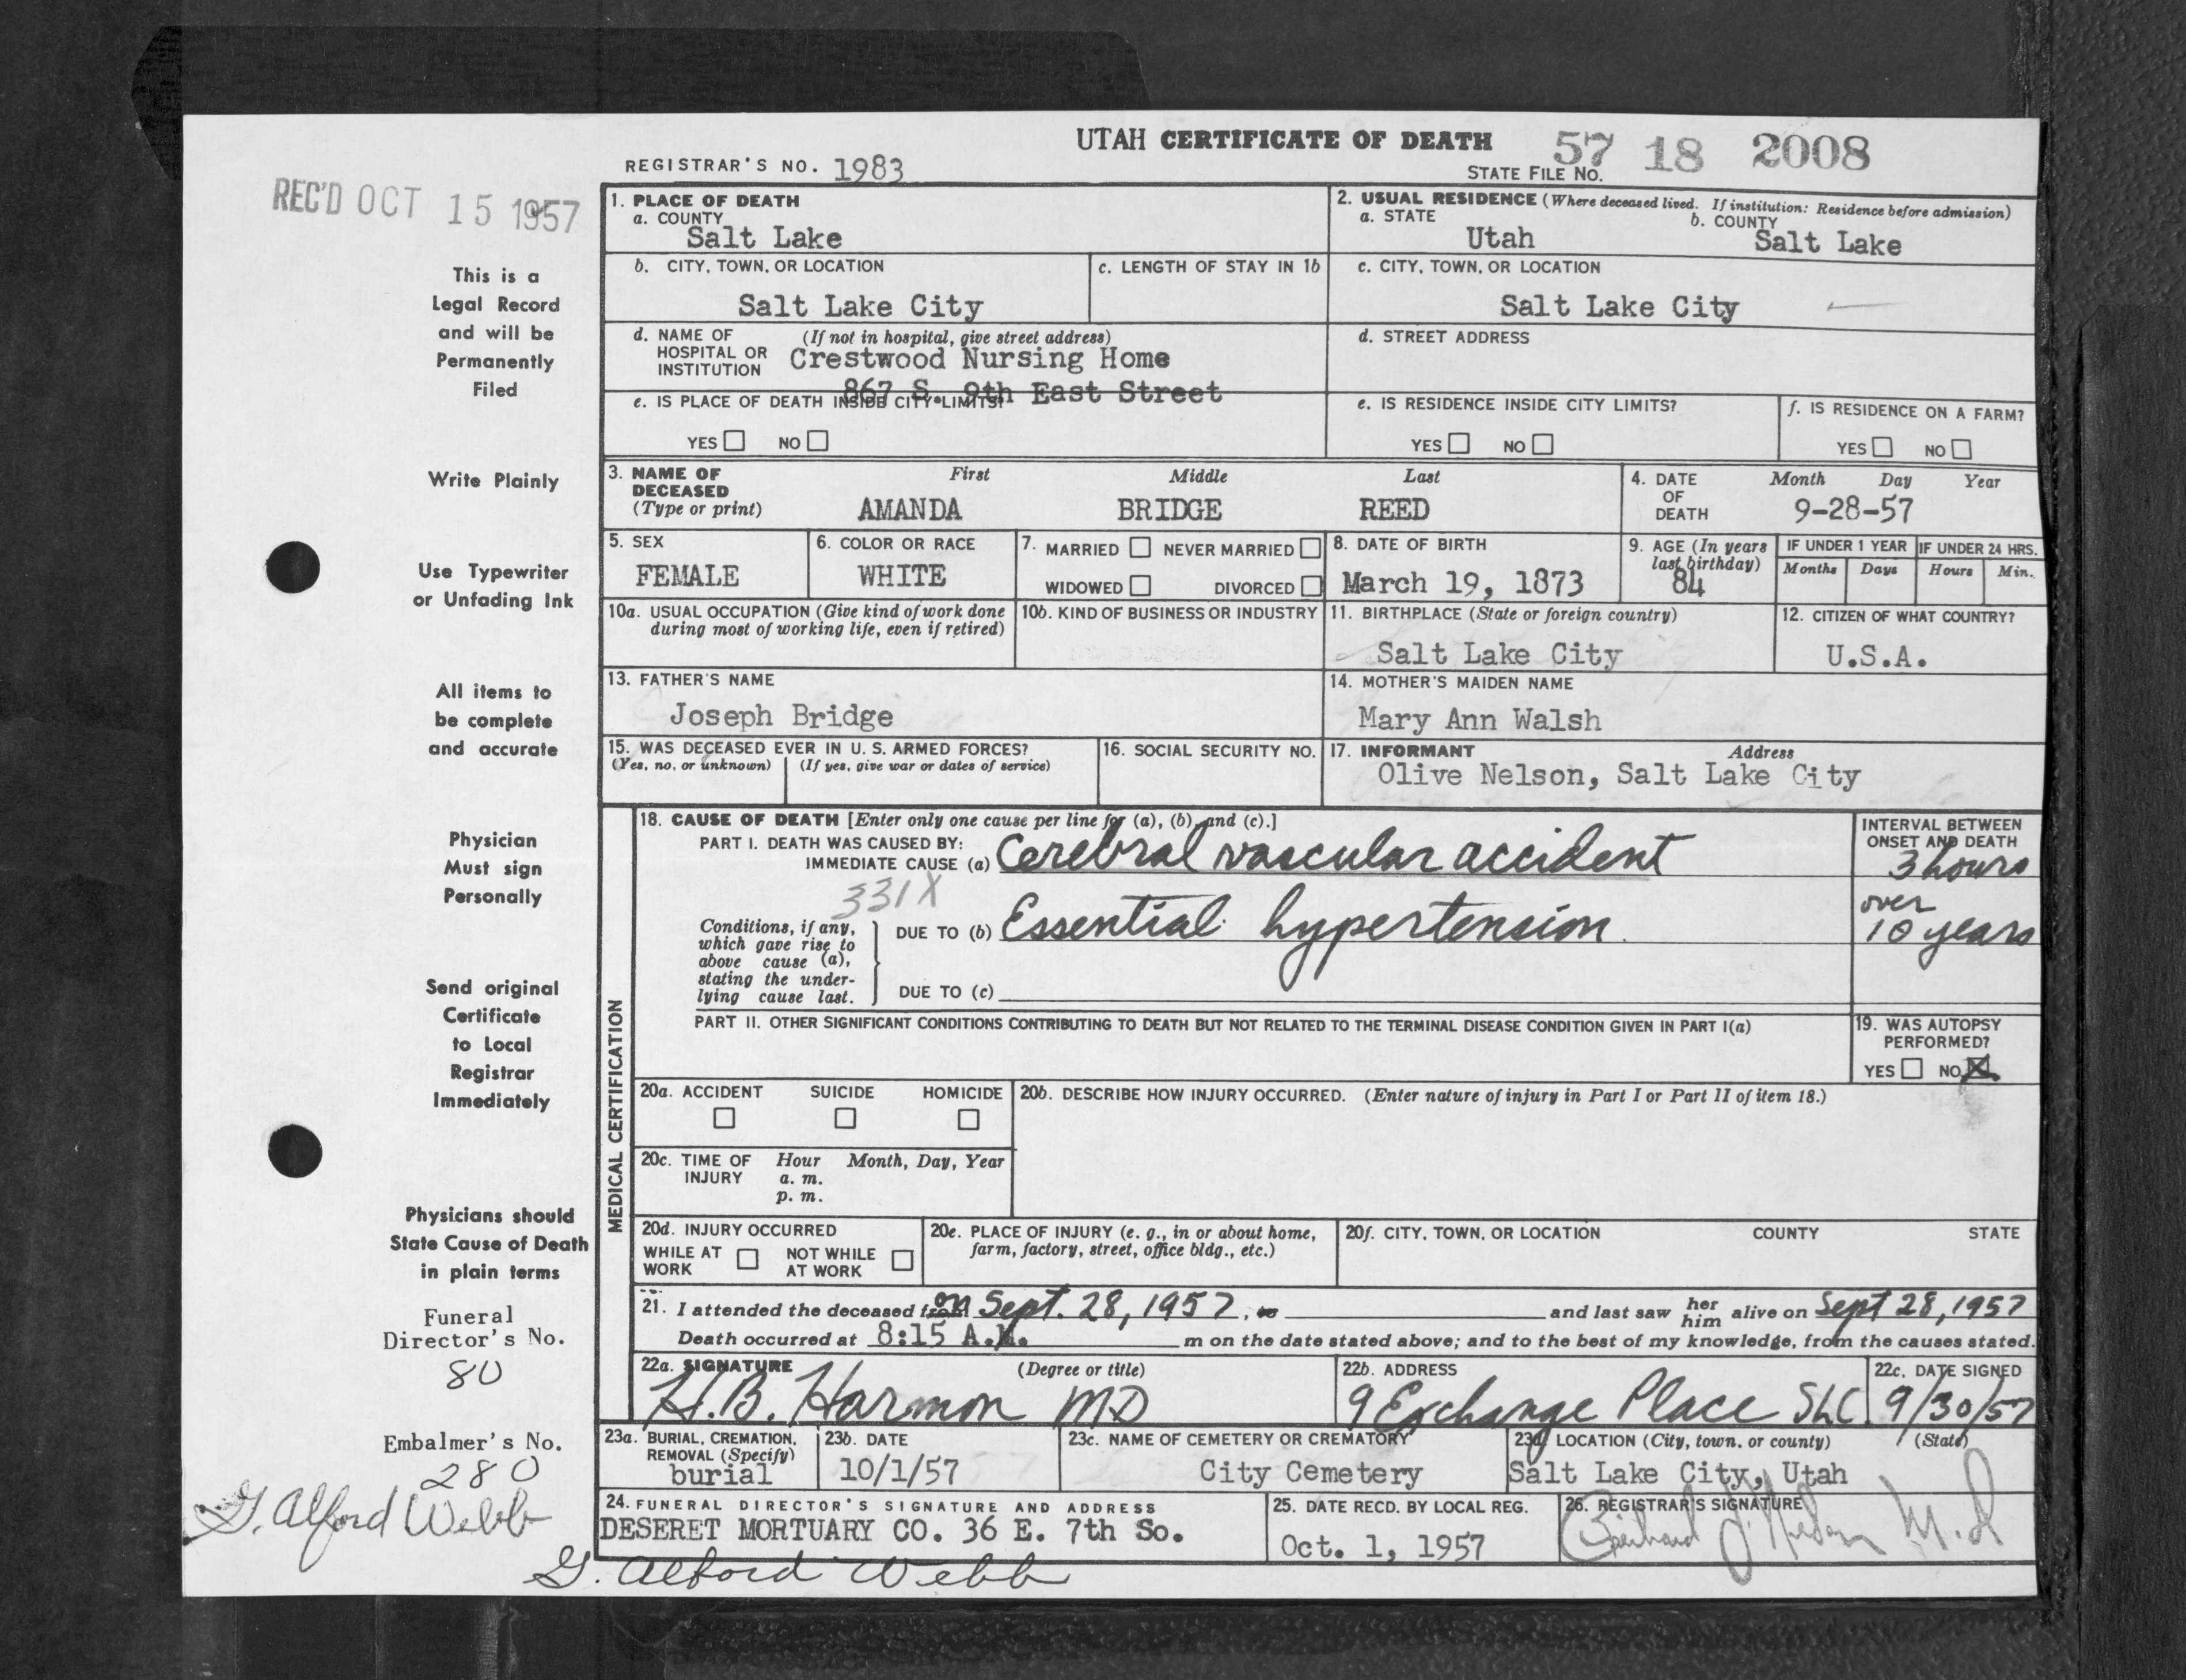 UTAH CERTIFICATE OF DEATH 57 18 2008
REGISTRAR'S NO. 1983
STATE FILE NO.
REC'D OCT 15 1957
This is a
Legal Record
and will be
Permanently
Filed
Write Plainly
Use Typewriter
or Unfading Ink
All items to
be complete
and accurate
Physician
Must sign
Personally
Send original
Certificate
to Local
Registrar
Immediately
Physicians should
State Cause of Death
in plain terms
Funeral
Director's No.
80
Embalmer's No.
280
G. Alford Webb
1. PLACE OF DEATH
a. COUNTY
Salt Lake
2. USUAL RESIDENCE (Where deceased lived. If institution: Residence before admission)
a. STATE
Utah
b. COUNTY
Salt Lake
b. CITY, TOWN, OR LOCATION
Salt Lake City
c. LENGTH OF STAY IN 1b
c. CITY, TOWN, OR LOCATION
Salt Lake City
d. NAME OF (If not in hospital, give street address)
HOSPITAL OR
INSTITUTION
Crestwood Nursing Home
867 S. 9th East Street
d. STREET ADDRESS
e. IS PLACE OF DEATH INSIDE CITY LIMITS?
YES NO
e. IS RESIDENCE INSIDE CITY LIMITS?
YES NO
f. IS RESIDENCE ON A FARM?
YES NO
3. NAME OF
DECEASED
(Type or print)
First Middle Last
AMANDA BRIDGE REED
4. DATE
OF
DEATH
Month Day Year
9-28-57
5. SEX
FEMALE
6. COLOR OR RACE
WHITE
7. MARRIED NEVER MARRIED
WIDOWED DIVORCED
8. DATE OF BIRTH
March 19, 1873
9. AGE (In years
last birthday)
84
IF UNDER 1 YEAR
Months Days
IF UNDER 24 HRS.
Hours Min.
10a. USUAL OCCUPATION (Give kind of work done
during most of working life, even if retired)
10b. KIND OF BUSINESS OR INDUSTRY
11. BIRTHPLACE (State or foreign country)
Salt Lake City
12. CITIZEN OF WHAT COUNTRY?
U.S.A.
13. FATHER'S NAME
Joseph Bridge
14. MOTHER'S MAIDEN NAME
Mary Ann Walsh
15. WAS DECEASED EVER IN U. S. ARMED FORCES?
(Yes, no, or unknown) (If yes, give war or dates of service)
16. SOCIAL SECURITY NO.
17. INFORMANT Address
Olive Nelson, Salt Lake City
MEDICAL CERTIFICATION
18. CAUSE OF DEATH [Enter only one cause per line for (a), (b), and (c).]
PART I. DEATH WAS CAUSED BY:
IMMEDIATE CAUSE (a) Cerebral vascular accident
331X
Conditions, if any,
which gave rise to
above cause (a),
stating the under-
lying cause last.
DUE TO (b) Essential hypertension
DUE TO (c)
INTERVAL BETWEEN
ONSET AND DEATH
3 hours
over
10 years
PART II. OTHER SIGNIFICANT CONDITIONS CONTRIBUTING TO DEATH BUT NOT RELATED TO THE TERMINAL DISEASE CONDITION GIVEN IN PART I(a)
19. WAS AUTOPSY
PERFORMED?
YES NO X
20a. ACCIDENT SUICIDE HOMICIDE
20b. DESCRIBE HOW INJURY OCCURRED. (Enter nature of injury in Part I or Part II of item 18.)
20c. TIME OF
INJURY
Hour Month, Day, Year
a. m.
p. m.
20d. INJURY OCCURRED
WHILE AT
WORK
NOT WHILE
AT WORK
20e. PLACE OF INJURY (e. g., in or about home,
farm, factory, street, office bldg., etc.)
20f. CITY, TOWN, OR LOCATION COUNTY STATE
21. I attended the deceased from on Sept. 28, 1957, to and last saw her him alive on Sept 28, 1957
Death occurred at 8:15 A.M. m on the date stated above; and to the best of my knowledge, from the causes stated.
22a. SIGNATURE (Degree or title)
H.B. Harmon MD
22b. ADDRESS
9 Exchange Place SLC.
22c. DATE SIGNED
9/30/57
23a. BURIAL, CREMATION,
REMOVAL (Specify)
burial
23b. DATE
10/1/57
23c. NAME OF CEMETERY OR CREMATORY
City Cemetery
23d. LOCATION (City, town, or county) (State)
Salt Lake City, Utah
24. FUNERAL DIRECTOR'S SIGNATURE AND ADDRESS
DESERET MORTUARY CO. 36 E. 7th So.
G. Alford Webb
25. DATE RECD. BY LOCAL REG.
Oct. 1, 1957
26. REGISTRAR'S SIGNATURE
M.D